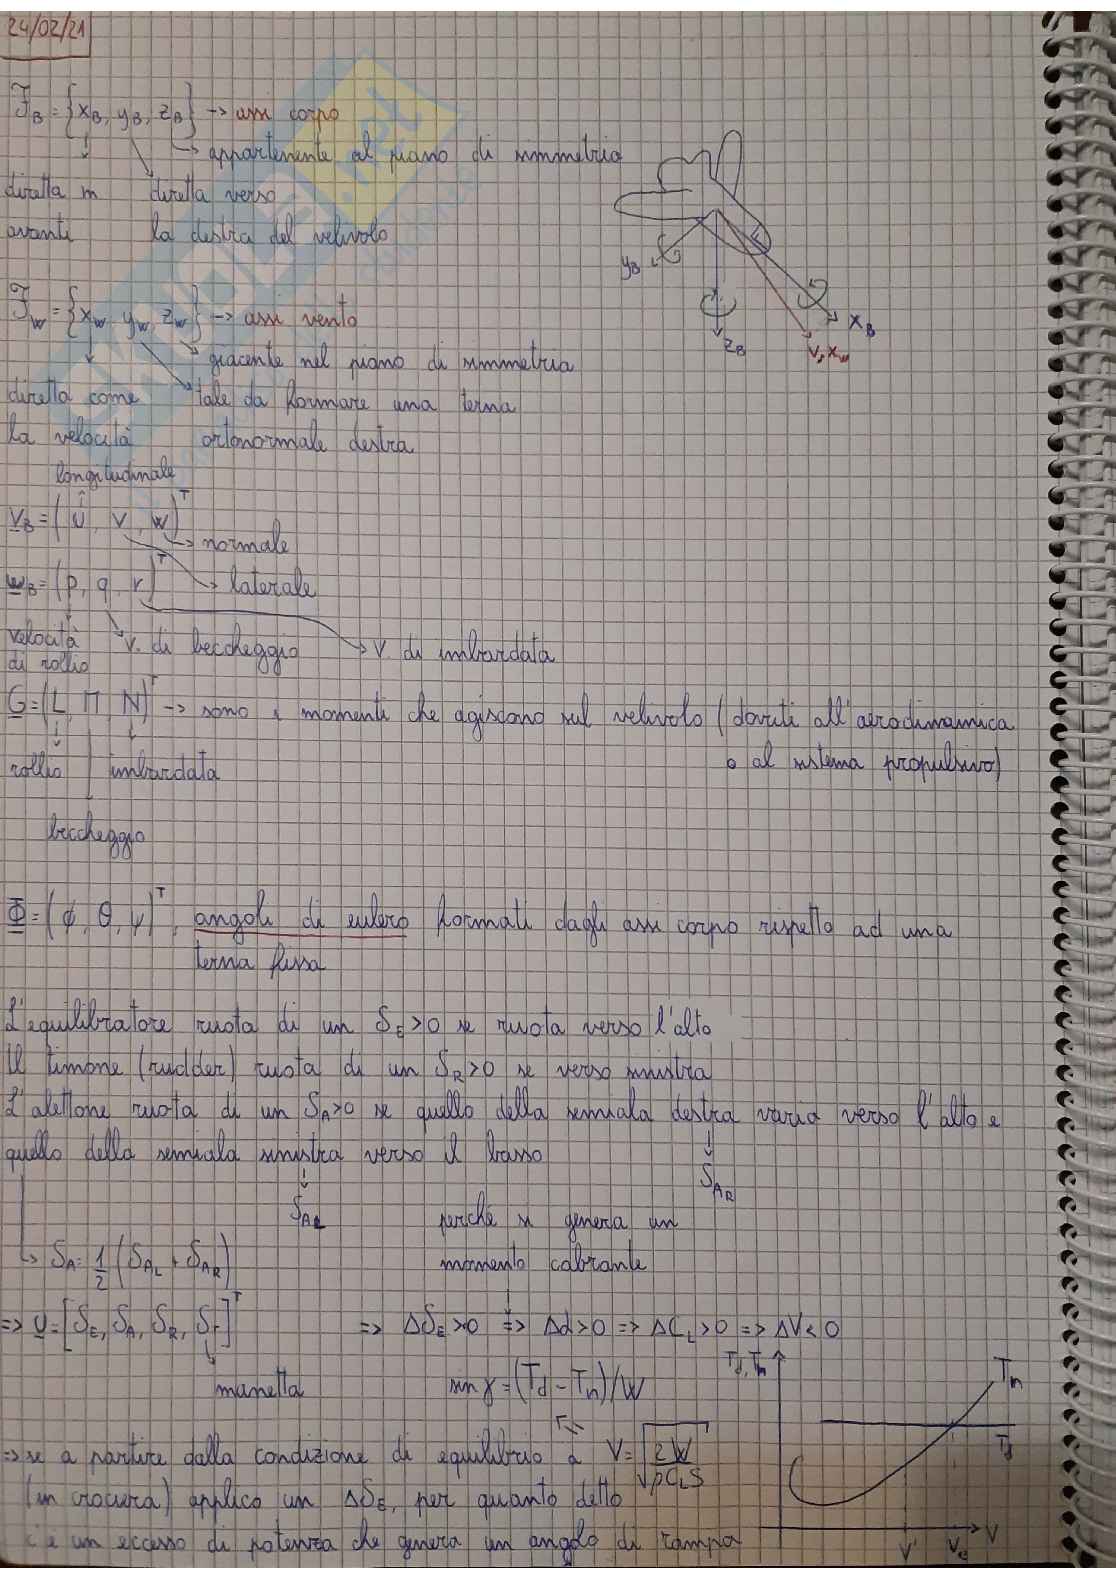 24/02/21
F_B = {x_B, y_B, z_B} -> assi corpo
-> appartenente al piano di simmetria
diretta in diretta verso
avanti la destra del velivolo
y_B
z_B
x_B
V, x_W
F_W = {x_W, y_W, z_W} -> assi vento
giacente nel piano di simmetria
diretta come tale da formare una terna
la velocità ortonormale destra
longitudinale
V_B = (U, V, W)^T
-> normale
ω_B = (p, q, r)^T -> laterale
velocità v. di beccheggio -> v. di imbardata
di rollio
G = (L, M, N)^T -> sono i momenti che agiscono sul velivolo (dovuti all'aerodinamica
rollio imbardata o al sistema propulsivo)
beccheggio
Φ = (φ, θ, ψ)^T, angoli di eulero formati dagli assi corpo rispetto ad una
terna fissa
L'equilibratore ruota di un δ_E>0 se ruota verso l'alto
Il timone (rudder) ruota di un δ_R>0 se verso sinistra
L'alettone ruota di un δ_A>0 se quello della semiala destra varia verso l'alto e
quello della semiala sinistra verso il basso
δ_AR
δ_AL
perché si genera un
-> δ_A = 1/2 (δ_AL + δ_AR)
momento cabrante
=> u = [δ_E, δ_A, δ_R, δ_T]^T => Δδ_E>0 => Δα>0 => ΔC_L>0 => ΔV<0
manetta
sin γ = (T_d - T_n)/W
T_d, T_n
T_n
T_d
V
V'
V_e
=> se a partire dalla condizione di equilibrio a V = √(2W/ρC_LS)
(in crociera) applico un Δδ_E, per quanto detto
c'è un eccesso di potenza che genera un angolo di rampa